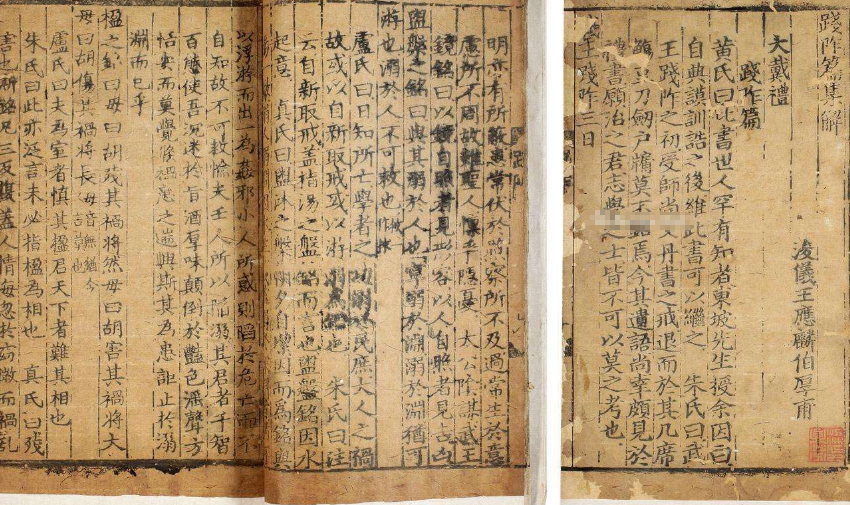 踐阼篇集解
浚儀王應麟伯厚甫
大戴禮
踐阼篇
黃氏曰此書世人罕有知者東坡先生授余因曰
自典謨訓誥之後維此書可以繼之 朱氏曰武
王踐阼之初受師尚父丹書之戒退而於其几席
觴豆刀劍戶牖莫不銘焉今其遺語尚幸頗見於
禮書願治之君志學之士皆不可以莫之考也
王踐阼三日
明亦有所蔽患常伏於 察所不及過常生於意
慮所不周故雖聖人懍乎隱憂 太公陰謀武王
鏡銘曰以鏡自照者見形容以人自照者見吉凶
盥盤之銘曰與其溺於人也寧溺於淵溺於淵猶可
游也溺於人不可救也
盧氏曰日知所亡學者之功溺於民庶大人之禍
故或以自新取戒或以游溺為 也 朱氏曰注
云自新取戒盖指湯之盤銘而言也盥盤銘因水
起意 真氏曰盥沐之盤朝夕自潔因而為銘與
以浮游而出一為姦邪小人所惑則陷於危亡而不
自知故不可救憸夫壬人所以陷溺其君者千智
百態使吾沉迷於旨酒厚味顛倒於艷色淫聲方
恬安而莫覺俄禍 之遄興斯其為患詎止於溺
淵而已乎
楹之銘曰毋曰胡殘其禍將然毋曰胡害其禍將大
毋曰胡傷其禍將長 毋音無猶今
盧氏曰夫為室者慎其楹君天下者難其相也
朱氏曰此亦泛言未必指楹為相也 真氏曰殘
害也斯銘凡三反復盖人情每忽於 微而禍常